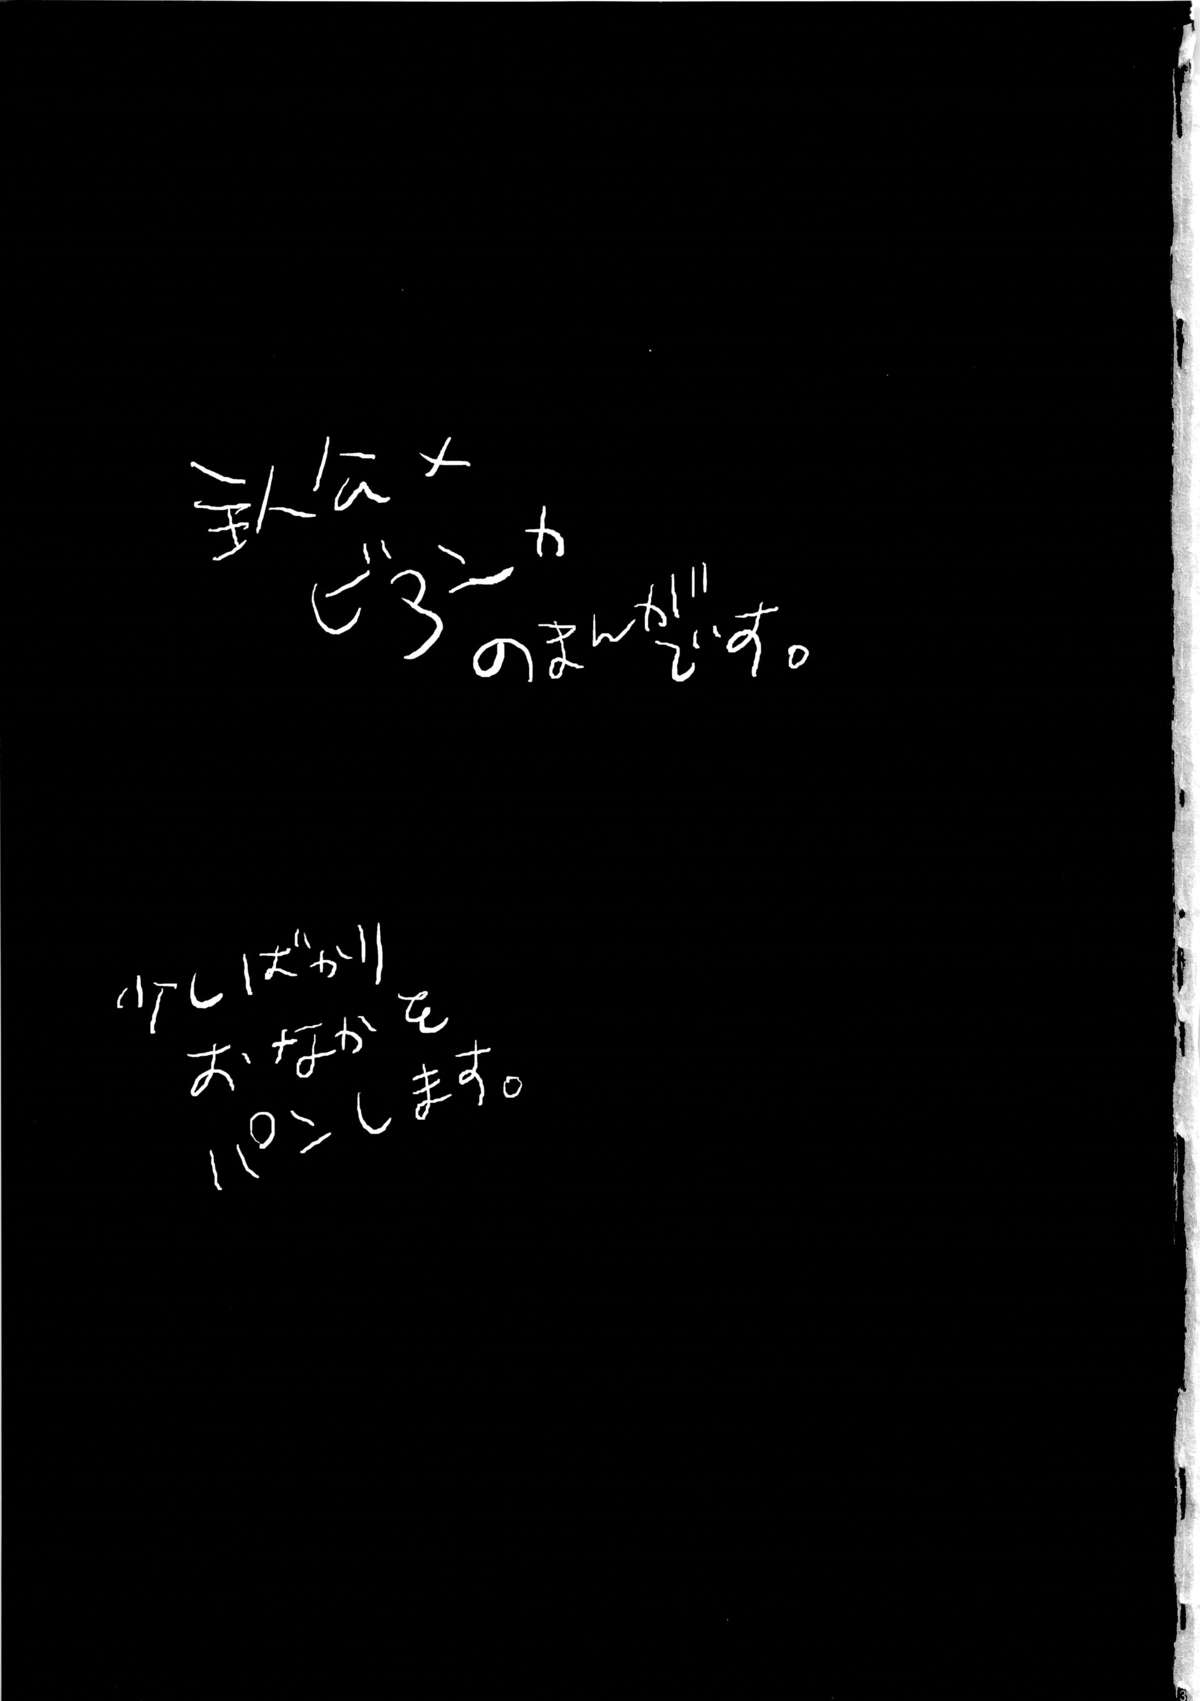 主人公×
ビアンカ
のまんがです。
少しばかり
おなかを
パンします。